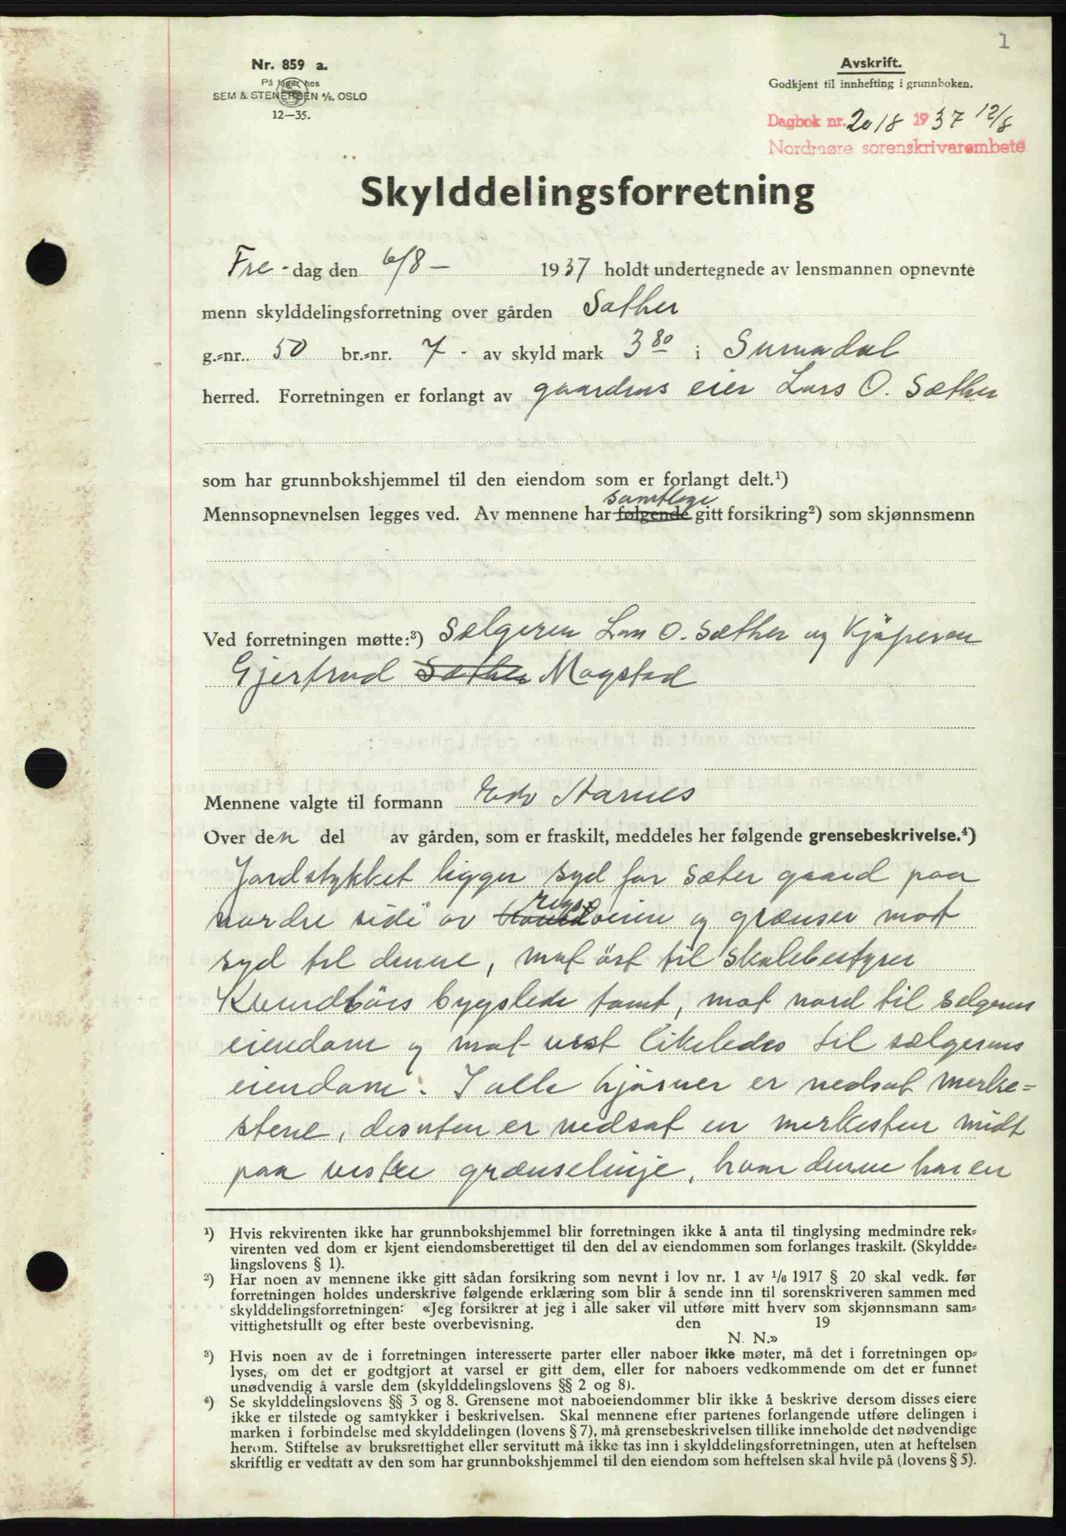 1
Nr. 859 a.
På lager hos
SEM & STENERSEN A/S, OSLO
12—35.
Avskrift.
Godkjent til innhefting i grunnboken.
Dagbok nr. 2018 1937 12/8
Nordmøre sorenskrivarembete
Skylddelingsforretning
Fre-dag den 6/8 — 1937 holdt undertegnede av lensmannen opnevnte
menn skylddelingsforretning over gården Sæther
g.-nr. 50 br.-nr. 7 - av skyld mark 3 80 i Surnadal
herred. Forretningen er forlangt av gaardens eier Lars O. Sæther
som har grunnbokshjemmel til den eiendom som er forlangt delt.¹)
samtlege
Mennsopnevnelsen legges ved. Av mennene har følgende gitt forsikring²) som skjønnsmenn
Ved forretningen møtte:³) Sælgeren Lars O. Sæther og Kjøperen
Gjertrud Sæther Mogstad
Mennene valgte til formann Edv Harnes
Over den del av gården, som er fraskilt, meddeles her følgende grensebeskrivelse.⁴)
Jordstykket ligger syd for Sæter gaard paa
nordre side av veien og grænser mot
syd til denne, mot öst til skolebestyrer
bygslede tomt, mot nord til selgerens
eiendom og mot vest likeledes til sælgerens
eiendom. I alle hjörner er nedsat merke=
stene, desuten er nedsat en merkesten midt
paa vestre grænselinje, hvor denne har en
¹) Hvis rekvirenten ikke har grunnbokshjemmel blir forretningen ikke å anta til tinglysing medmindre rek-
virenten ved dom er kjent eiendomsberettiget til den del av eiendommen som forlanges fraskilt. (Skyldde-
lingslovens § 1).
²) Har noen av mennene ikke gitt sådan forsikring som nevnt i lov nr. 1 av 1/6 1917 § 20 skal vedk. før
forretningen holdes underskrive følgende erklæring som blir å sende inn til sorenskriveren sammen med
skylddelingsforretningen: «Jeg forsikrer at jeg i alle saker vil utføre mitt hverv som skjønnsmann sam-
vittighetsfullt og efter beste overbevisning. den 19
N. N.»
³) Hvis noen av de i forretningen interesserte parter eller naboer ikke møter, må det i forretningen op-
lyses, om det er godtgjort at varsel er gitt dem, eller for naboers vedkommende om det er funnet
unødvendig å varsle dem (skylddelingslovens §§ 2 og 8).
⁴) Se skylddelingslovens §§ 3 og 8. Grensene mot naboeiendommer blir ikke å beskrive dersom disses eiere
ikke er tilstede og samtykker i beskrivelsen. Skal mennene efter partenes forlangende utføre delingen i
marken i forbindelse med skylddelingen (lovens § 7), må grensebeskrivelsen tillike inneholde det nødvendige
herom. Stiftelse av bruksrettighet eller servitutt må ikke tas inn i skylddelingsforretningen, uten at heftelsen
skriftlig er vedtatt av den som har grunnbokshjemmel til den eiendom som heftelsen skal hvile på (lovens § 5).